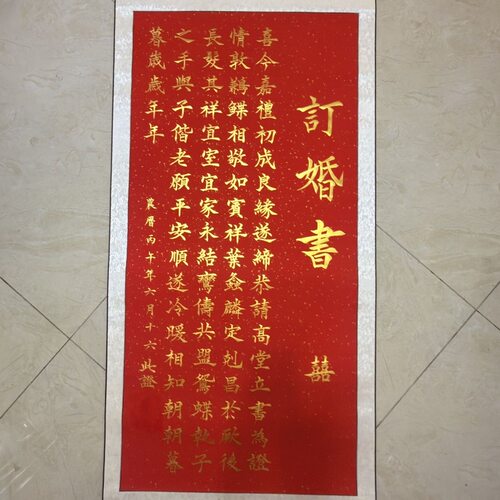 訂婚書
囍
喜今嘉禮初成良緣遂締恭請高堂立書為證
情敦鶼鰈相敬如賓祥葉螽麟定尅昌於厥後
長發其祥宜室宜家永結鸞儔共盟鴛蝶執子
之手與子偕老願平安順遂冷暖相知朝朝暮
暮歲歲年年
農曆丙午年六月十六此證